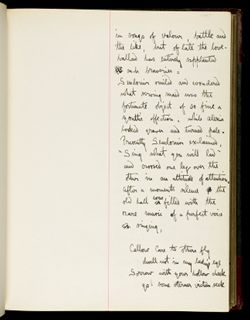 in songs of valour, battle and
the like, but of late the love-
ballad has entirely supplanted
such
Sendorion smiled and wondered
what serving maid was the
fortunate object of so fine a
gentle affection, while
looked graver and turned pale.
Presently Sendorion exclaimed,
"Sing what you will lad"
and crossed one leg over the
other in an attitude of attention.
After a moments silence the
old hall was filled with the
rare music of a perfect voice
singing,
Callow Care to others fly
dwell not in my lady's eye
Sorrow with your hollow cheek
go! some sterner victim seek